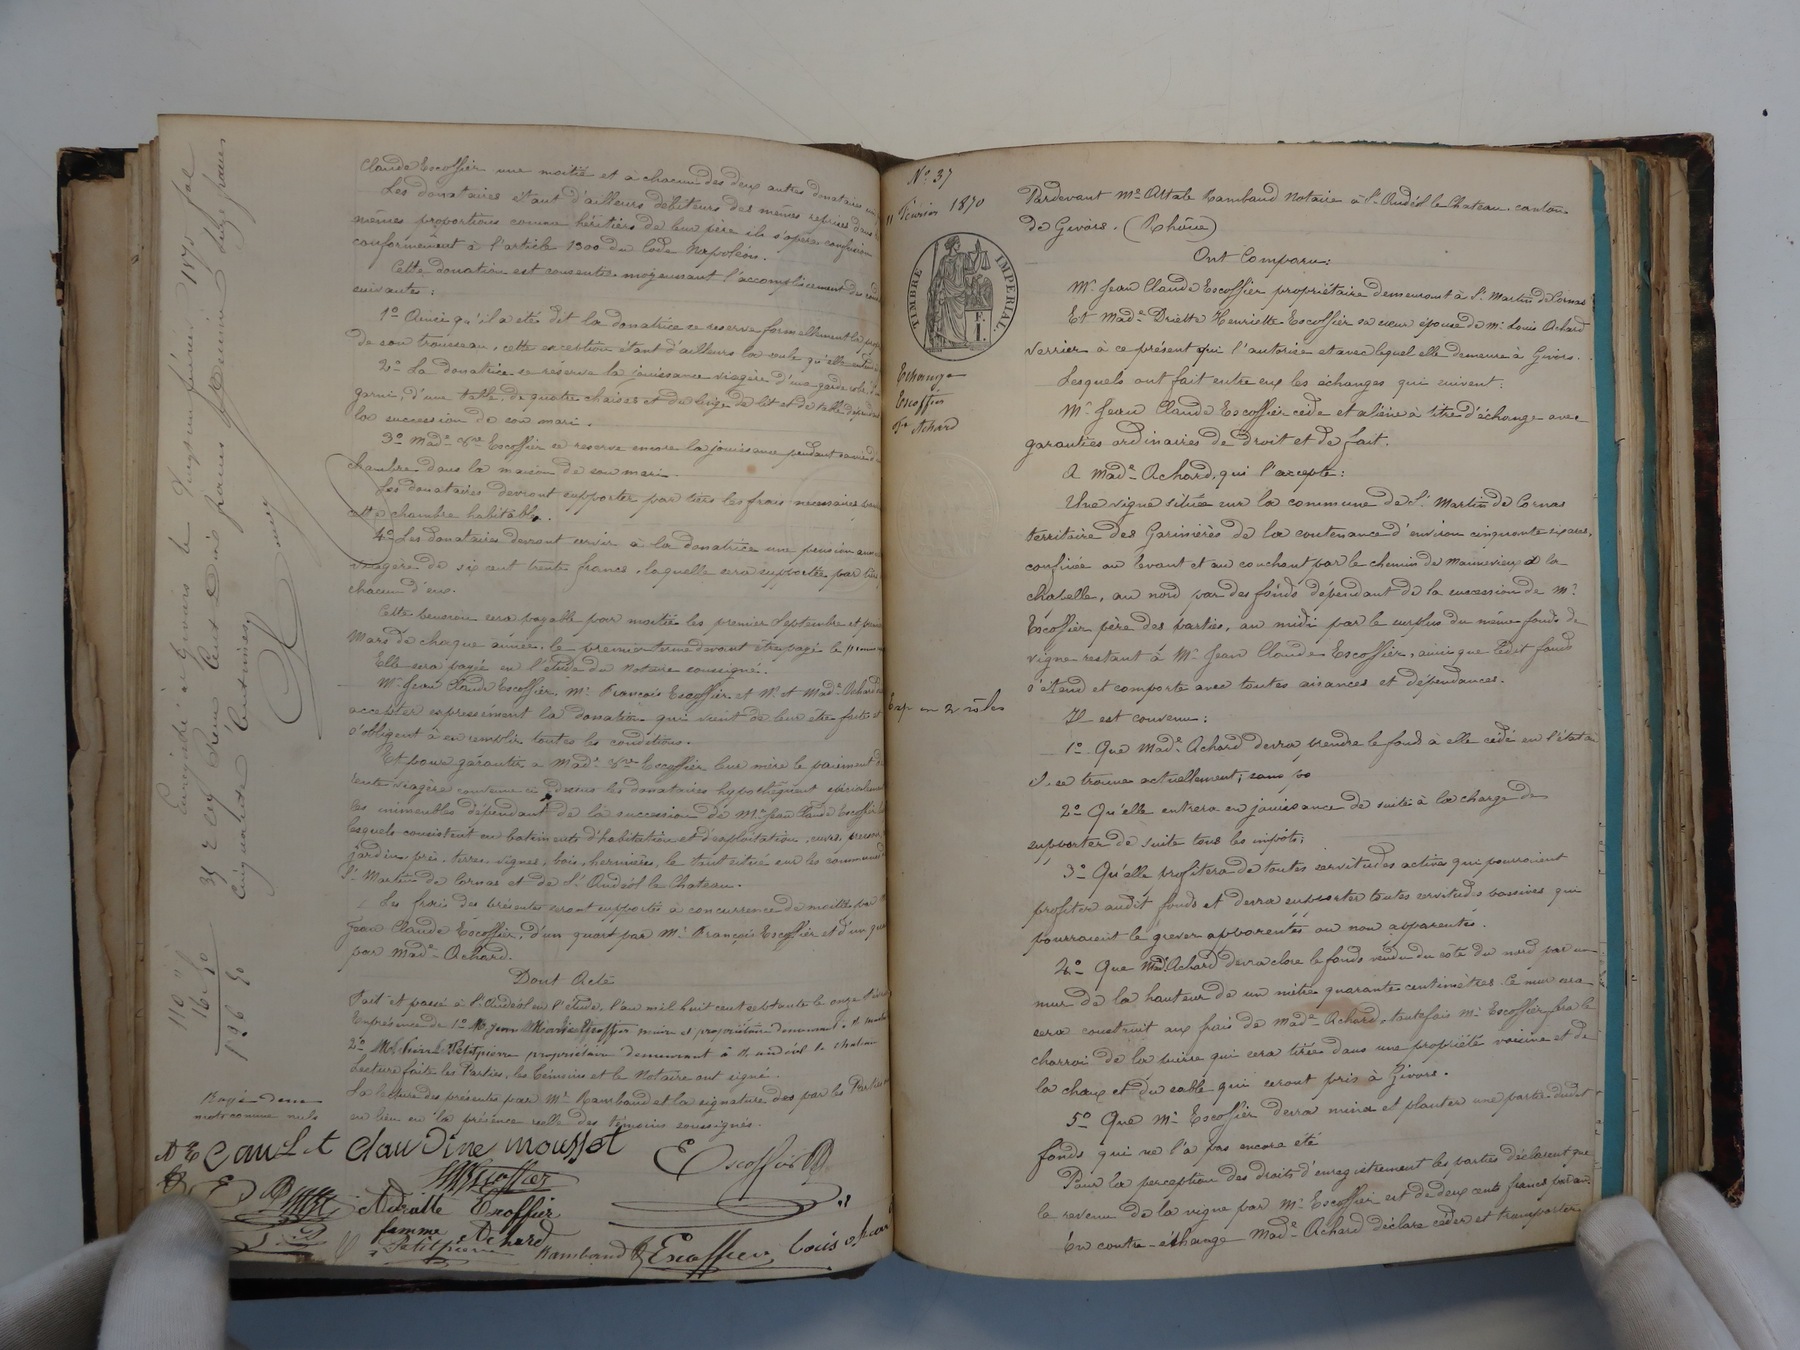 Claude Escoffier une moitié et à chacun des deux autres donataires
Les donataires étant d'ailleurs débiteurs des mêmes reprises dans
mêmes proportions comme héritiers de leur père il s'opère confusion
conformément à l'article 1300 du Code Napoléon.
Cette donation est consentie moyennant l'accomplissement des
suivantes :
1° Ainsi qu'il a été dit la donatrice se réserve formellement
de son trousseau, cette exception étant d'ailleurs la seule qu'elle
2° La donatrice se réserve la jouissance viagère d'une garde robe,
garni, d'une table, de quatre chaises et du linge de lit et de table
la succession de son mari.
3° Made Vve Escoffier se reserve encore la jouissance pendant sa vie
chambre dans la maison de son mari
Les donataires devront supporter par tiers les frais nécessaires
cette chambre habitable.
4° Les donataires devront servir à la donatrice une pension
viagère de six cent trente francs, laquelle sera supportée par tiers
chacun d'eux.
Cette pension sera payable par moitié les premier Septembre et
Mars de chaque année, le premier terme devant être payé le
Elle sera payée en l'étude du Notaire soussigné.
Mr Jean Claude Escoffier, Mr François Escoffier et Mr et Made Achard
accepter expressément la donation qui vient de leur être faite et
s'obligent à en remplir toutes les conditions.
Et pour garantir a Made Vve Escoffier leur mère le paiement de
rente viagère convenue ci dessus les donataires hypothèquent spécialement
les immeubles dépendant de la succession de Mr Jean Claude Escoffier
lesquels consistent en batiments d'habitation et d'exploitation, cours,
jardin, prés, terres, vignes, bois, hermières, le tout situé sur les communes
St Martin de Cornas et de St Andéol le Chateau.
Les frais des présentes seront supportés à concurrence de moitié par
Jean Claude Escoffier, d'un quart par Mr François Escoffier et d'un
par Made Achard.
Dont Acte
Fait et passé à St Andéol en l'étude, l'an mil huit cent septante le onze
En présence de 1° M. Jean Marie Escoffier maire et propriétaire demeurant à St
2° M. Pierre Petitpierre propriétaire demeurant à St andéol le chateau
Lecture faite les Parties, les témoins et le Notaire ont signé.
La lecture des présentes par Mr Rambaud et la signature des par les Parties
eu lieu en la présence réelle des témoins soussignés.
Rayé deux
mots comme nuls
Claudine mousset
Escoffier
Escoffier
Driette Escoffier
femme Achard
Petitpierre
Rambaud
Escoffier
Louis
Enregistré à Givors le vingt un février 1870
Reçu Cent Dix francs
Cinquante Centimes
110 "
16 50
126 50
N° 37
11 Février 1870
TIMBRE IMPERIAL
E. I.
Echange
Escoffier
Fe Achard
Exp en 2 rôles
Pardevant Me Attale Rambaud Notaire à St Andéol le Chateau, canton
de Givors. (Rhône)
Ont Comparu :
Mr Jean Claude Escoffier propriétaire demeurant à St Martin de Cornas
Et Made Driette Henriette Escoffier sa sœur épouse de Mr Louis Achard
verrier à ce présent qui l'autorise et avec lequel elle demeure à Givors.
Lesquels ont fait entre eux les échanges qui suivent :
Mr Jean Claude Escoffier cède et aliène à titre d'échange avec
garanties ordinaires de droit et de fait.
A Made Achard, qui l'accepte :
Une vigne située sur la commune de St Martin de Cornas
territoire des Garinières de la contenance d'environ cinquante six ares,
confinée au levant et au couchant par le chemin de Mannevieux à la
chapelle, au nord par des fonds dépendant de la succession de Mr
Escoffier père des parties, au midi par le surplus du même fonds de
vigne restant à Mr Jean Claude Escoffier, ainsi que ledit fonds
s'étend et comporte avec toutes aisances et dépendances.
Il est convenu :
1° Que Made Achard devra prendre le fond à elle cédé en l'état où
il se trouve actuellement; sans po
2° Qu'elle entrera en jouissance de suite à la charge de
supporter de suite tous les impôts;
3° Qu'elle profitera de toutes servitudes actives qui pourraient
profiter audit fonds et devra supporter toutes servitudes passives qui
pourraient le grever apparentes ou non apparentes.
4° Que Made Achard devra clore le fonds vendu du côté du nord par un
mur de la hauteur de un mètre quarante centimètres. Ce mur sera
sera construit aux frais de Made Achard, toutefois Mr Escoffier fera le
charroi de la pierre qui sera tirée dans une propriété voisine et de
la chaux et du sable qui seront pris à Givors.
5° Que Mr Escoffier devra miner et planter une partie dudit
fonds qui ne l'a pas encore été
Pour la perception des droits d'enregistrement les parties déclarent que
le revenu de la vigne par Mr Escoffier est de deux cents francs par an
En contre-échange Made Achard déclare céder et transporter